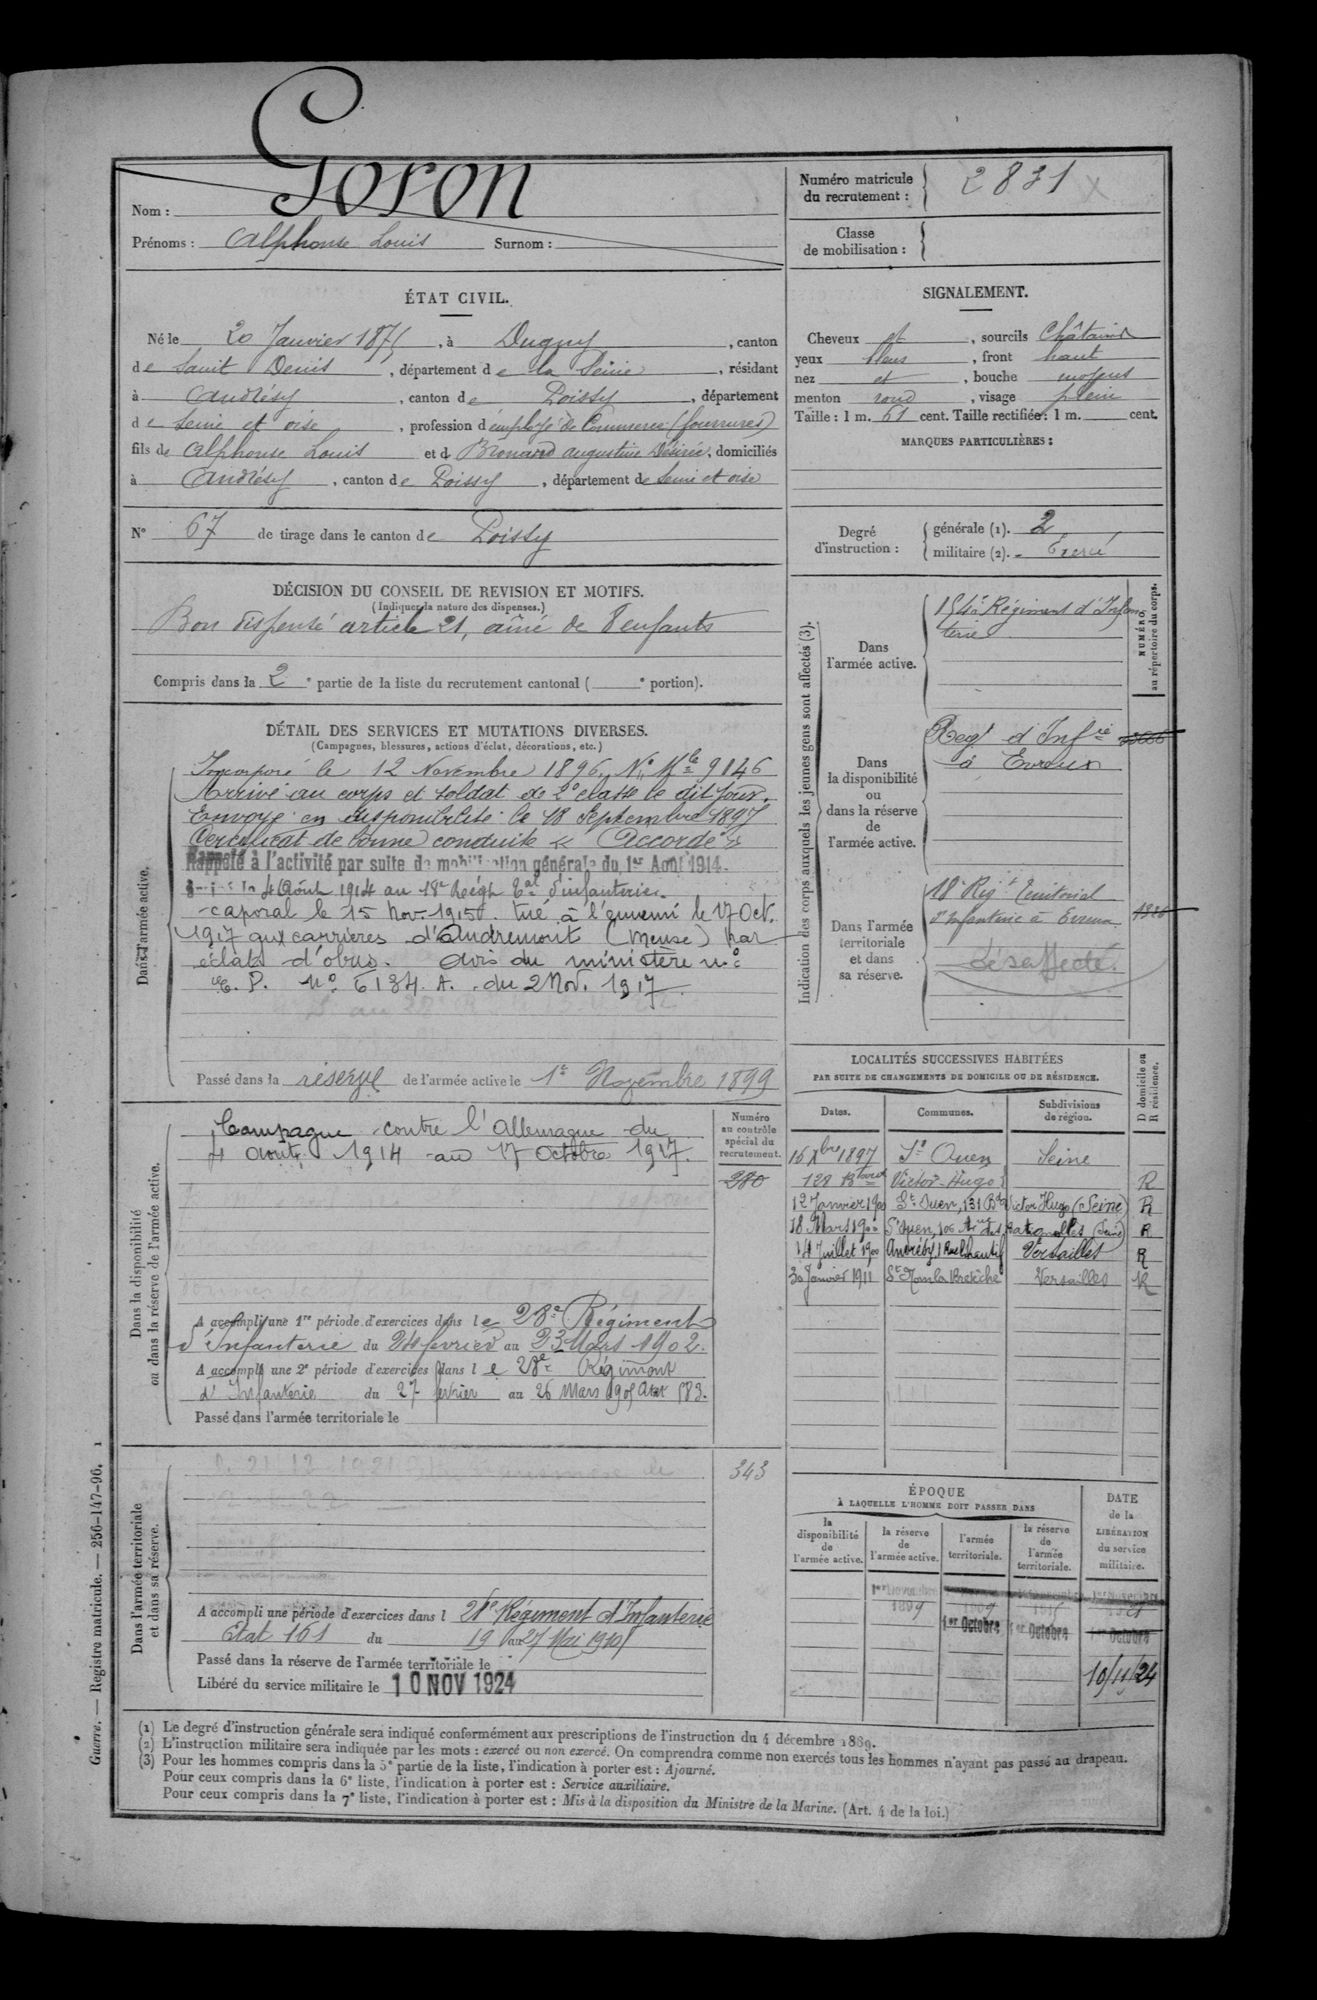 Goron
Nom :
Prénoms : Alphonse Louis Surnom :
Numéro matricule
du recrutement : 2831
Classe
de mobilisation :
ÉTAT CIVIL.
Né le 20 Janvier 1875, à Dugny, canton
de Saint Denis, département de la Seine, résidant
à Andrésy, canton de Poissy, département
de Seine et oise, profession d'employé de Commerce (fourrures)
fils de Alphonse Louis et d Augustine Désirée, domiciliés
à Andrésy, canton de Poissy, département de Seine et oise
N° 67 de tirage dans le canton de Poissy
SIGNALEMENT.
Cheveux et, sourcils Châtains
yeux bleus, front haut
nez et, bouche moyens
menton rond, visage plein
Taille : 1 m. 61 cent. Taille rectifiée : 1 m. cent.
MARQUES PARTICULIÈRES :
Degré
d'instruction :
générale (1). 2
militaire (2). Exercé
DÉCISION DU CONSEIL DE REVISION ET MOTIFS.
(Indiquer la nature des dispenses.)
Bon dispensé article 21, aîné de 8 enfants
Compris dans la 2e partie de la liste du recrutement cantonal ( e portion).
DÉTAIL DES SERVICES ET MUTATIONS DIVERSES.
(Campagnes, blessures, actions d'éclat, décorations, etc.)
Dans l'armée active.
Incorporé le 12 Novembre 1896, N° Mle 9146
Arrivé au corps et soldat de 2e classe le dit jour.
Envoyé en disponibilité le 18 Septembre 1897
Certificat de bonne conduite « Accordé »
Rappelé à l'activité par suite de mobilisation générale du 1er Août 1914.
4 Août 1914 au 18e Régt Tal d'infanterie.
caporal le 15 Nov. 1915. tué à l'ennemi le 17 Oct.
1917 aux carrières d'Audremont (Meuse) par
éclats d'obus. Avis du ministère n°
E. P. N° 6134. A. du 2 Nov. 1917.
Passé dans la réserve de l'armée active le 1er Novembre 1899
Indication des corps auxquels les jeunes gens sont affectés (3).
NUMÉRO
au répertoire du corps.
Dans
l'armée active.
154e Régiment d'Infan
terie
Dans
la disponibilité
ou
dans la réserve
de
l'armée active.
Regt d'Infrie
à Evreux
Dans l'armée
territoriale
et dans
sa réserve.
18e Regt Territorial
d'Infanterie à Evreux
Désaffecté.
Dans la disponibilité
ou dans la réserve de l'armée active.
Numéro
au contrôle
spécial du
recrutement.
280
Campagne contre l'Allemagne du
4 Août 1914 au 17 Octobre 1917.
A accompli une 1re période d'exercices dans le 28e Régiment
d'Infanterie du 24 février au 23 Mars 1902.
A accompli une 2e période d'exercices dans le 28e Régiment
d'Infanterie du 27 février au 26 Mars 1905 Etat 183.
Passé dans l'armée territoriale le
LOCALITÉS SUCCESSIVES HABITÉES
PAR SUITE DE CHANGEMENTS DE DOMICILE OU DE RÉSIDENCE.
Dates. Communes. Subdivisions
de région.
D domicile ou
R résidence.
16 Xbre 1897 St Ouen Seine
128 Bould Victor Hugo R
12 Janvier 1900 St Ouen, 131 Bd Victor Hugo (Seine) R
18 Mars 1900 St Ouen, (Seine) R
14 Juillet 1900 Andrésy, Versailles R
30 Janvier 1911 St Nom la Bretèche Versailles R
Dans l'armée territoriale
et dans sa réserve.
343
A accompli une période d'exercices dans l 28e Régiment d'Infanterie
Etat 161 du 19 au 27 Mai 1910
Passé dans la réserve de l'armée territoriale le
Libéré du service militaire le 10 NOV 1924
ÉPOQUE
À LAQUELLE L'HOMME DOIT PASSER DANS
la
disponibilité
de
l'armée active.
la réserve
de
l'armée active.
l'armée
territoriale.
la réserve
de
l'armée
territoriale.
DATE
de la
LIBÉRATION
du service
militaire.
1er Octobre 1er Octobre 1er Octobre
10/11/24
(1) Le degré d'instruction générale sera indiqué conformément aux prescriptions de l'instruction du 4 décembre 1889.
(2) L'instruction militaire sera indiquée par les mots : exercé ou non exercé. On comprendra comme non exercés tous les hommes n'ayant pas passé au drapeau.
(3) Pour les hommes compris dans la 5e partie de la liste, l'indication à porter est : Ajourné.
Pour ceux compris dans la 6e liste, l'indication à porter est : Service auxiliaire.
Pour ceux compris dans la 7e liste, l'indication à porter est : Mis à la disposition du Ministre de la Marine. (Art. 4 de la loi.)
Guerre. — Registre matricule. — 256-147-96. 1